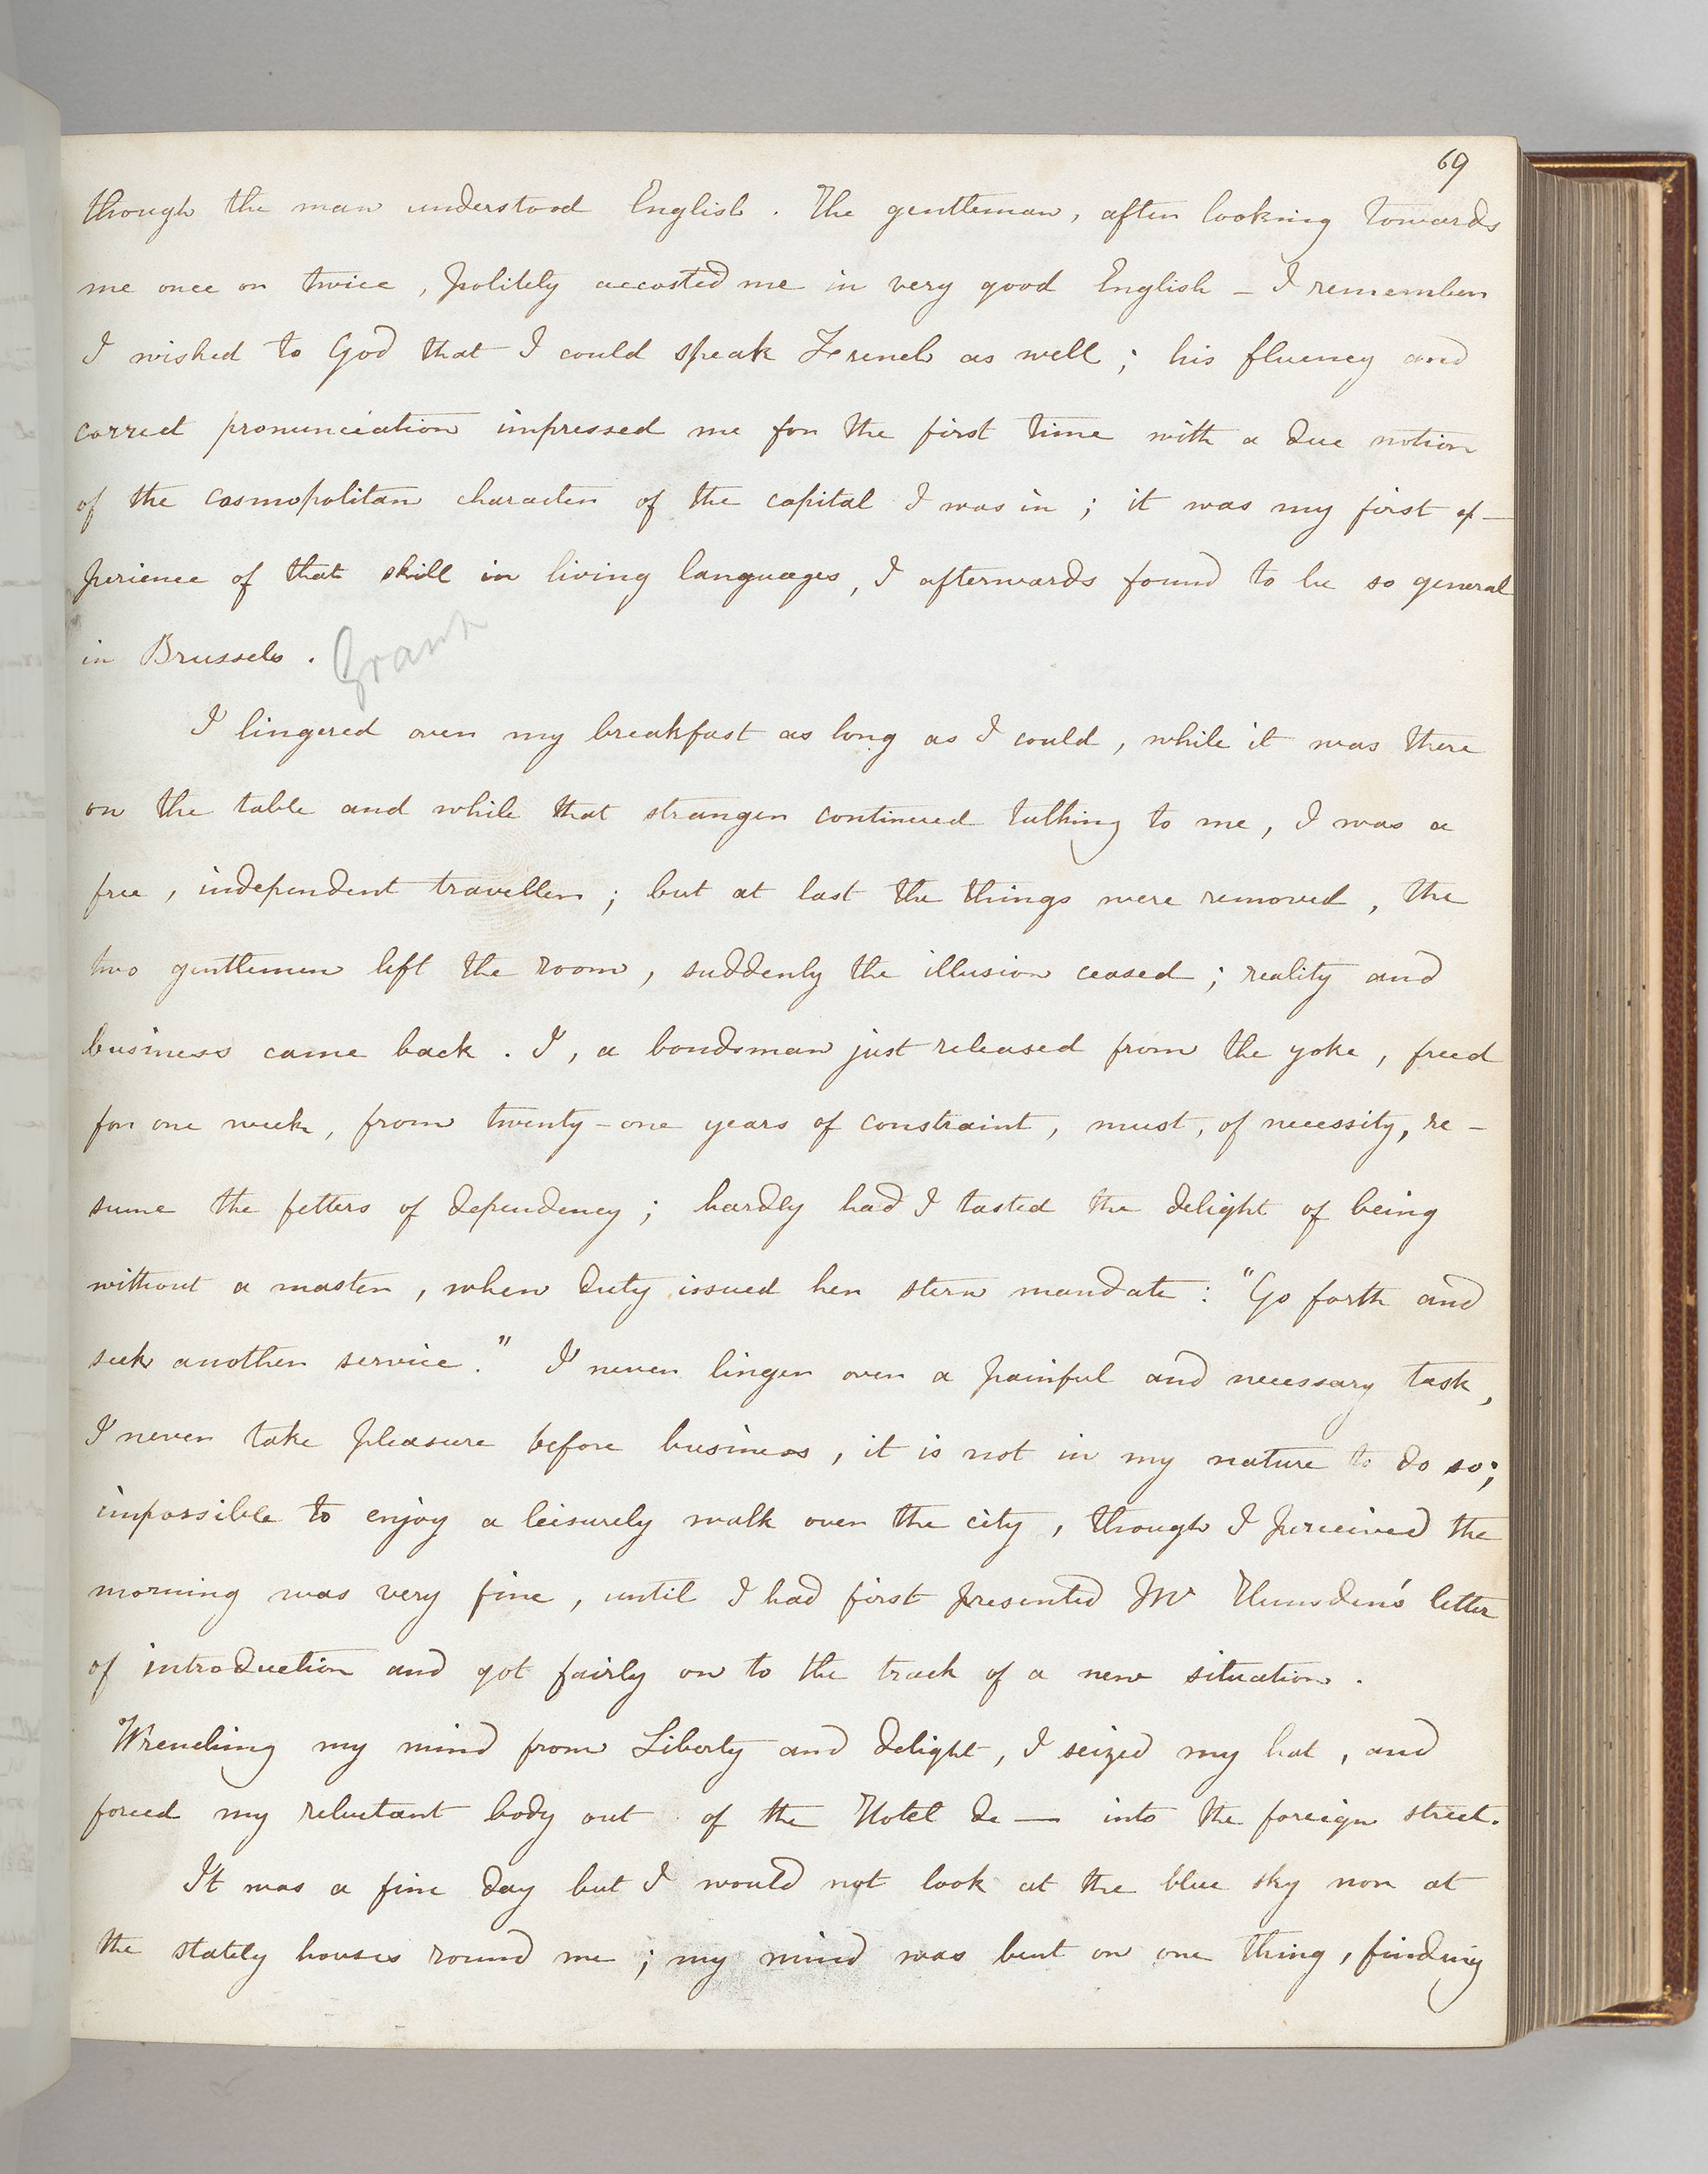 69
though the man understood English. The gentleman, after looking towards
me once or twice, politely accosted me in very good English – I remember
I wished to God that I could speak French as well; his fluency and
correct pronunciation impressed me for the first time with a due notion
of the cosmopolitan character of the capital I was in; it was my first ex–
perience of that skill in living languages, I afterwards found to be so general
in Brussels. Grant
I lingered over my breakfast as long as I could, while it was there
on the table and while that stranger continued talking to me, I was a
free, independent traveller; but at last the things were removed, the
two gentlemen left the room, suddenly the illusion ceased; reality and
business came back. I, a bondsman just released from the yoke, freed
for one week, from twenty-one years of constraint, must, of necessity, re–
sume the fetters of dependency; hardly had I tasted the delight of being
without a master, when duty issued her stern mandate: "Go forth and
seek another service." I never linger over a painful and necessary task,
I never take pleasure before business, it is not in my nature to do so;
impossible to enjoy a leisurely walk over the city, though I perceived the
morning was very fine, until I had first presented Mr Hunsden's letter
of introduction and got fairly on to the track of a new situation.
Wrenching my mind from Liberty and delight, I seized my hat, and
forced my reluctant body out of the Hotel de — into the foreign street.
It was a fine day but I would not look at the blue sky nor at
the stately houses round me; my mind was bent on one thing, finding